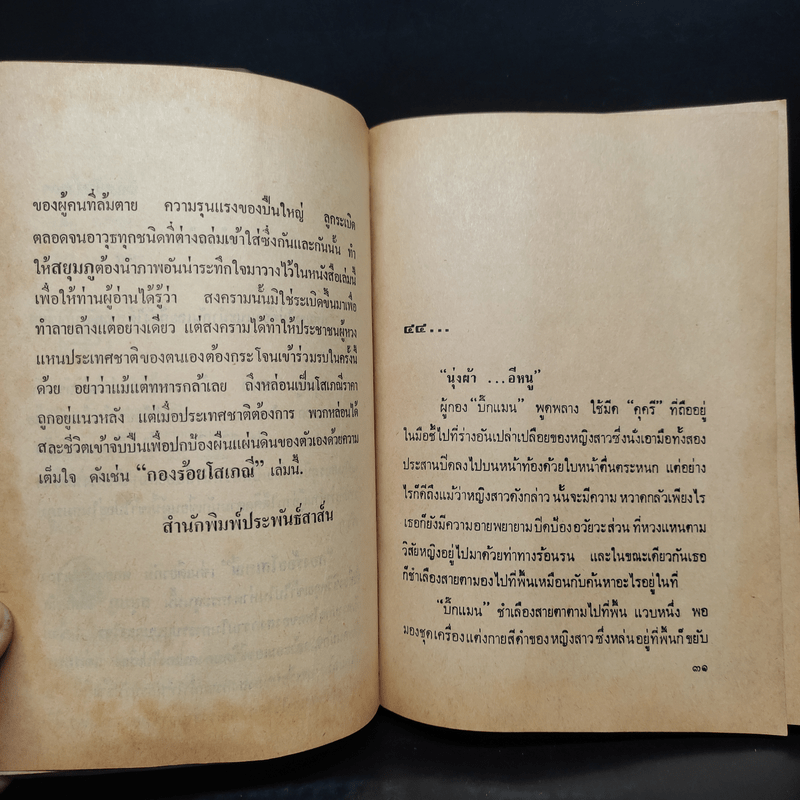 ของผู้คนที่ล้มตาย ความรุนแรงของปืนใหญ่ ลูกระเบิด
ตลอดจนอาวุธทุกชนิดที่ต่างถล่มเข้าใส่ซึ่งกันและกันนั้น ทำ
ให้สยุมภูต้องนำภาพอันน่าระทึกใจมาวางไว้ในหนังสือเล่มนี้
เพื่อให้ท่านผู้อ่านได้รู้ว่า สงครามนั้นมิใช่ระเบิดขึ้นมาเพื่อ
ทำลายล้างแต่อย่างเดียว แต่สงครามได้ทำให้ประชาชนผู้หวง
แหนประเทศชาติของตนเองต้องกระโจนเข้าร่วมรบในครั้งนี้
ด้วย อย่าว่าแม้แต่ทหารกล้าเลย ถึงหล่อนเป็นโสเภณีราคา
ถูกอยู่แนวหลัง แต่เมื่อประเทศชาติต้องการ พวกหล่อนได้
สละชีวิตเข้าจับปืนเพื่อปกป้องผืนแผ่นดินของตัวเองด้วยความ
เต็มใจ ดังเช่น “กองร้อยโสเภณี” เล่มนี้.
สำนักพิมพ์ประพันธ์สาส์น
๔๔...
“นุ่งผ้า ...อีหนู”
ผู้กอง “บิ๊กแมน” พูดพลาง ใช้มีด “คุครี” ที่ถืออยู่
ในมือชี้ไปที่ร่างอันเปล่าเปลือยของหญิงสาวซึ่งนั่งเอามือทั้งสอง
ประสานปิดลงไปบนหน้าท้องด้วยใบหน้าตื่นตระหนก แต่อย่าง
ไรก็ดีถึงแม้ว่าหญิงสาวดังกล่าว นั้นจะมีความ หวาดกลัวเพียงไร
เธอก็ยังมีความอายพยายาม ปิดป้อง อวัยวะส่วน ที่หวงแหนตาม
วิสัยหญิงอยู่ไปมาด้วยท่าทางร้อนรน และในขณะเดียวกันเธอ
ก็ชำเลืองสายตามองไปที่พื้นเหมือนกับค้นหาอะไรอยู่ในที
“บิ๊กแมน” ชำเลืองสายตาตามไปที่พื้น แวบหนึ่ง พอ
มองชุดเครื่องแต่งกายสีดำของหญิงสาวซึ่งหล่นอยู่ที่พื้นก็ ขยับ
๓๑